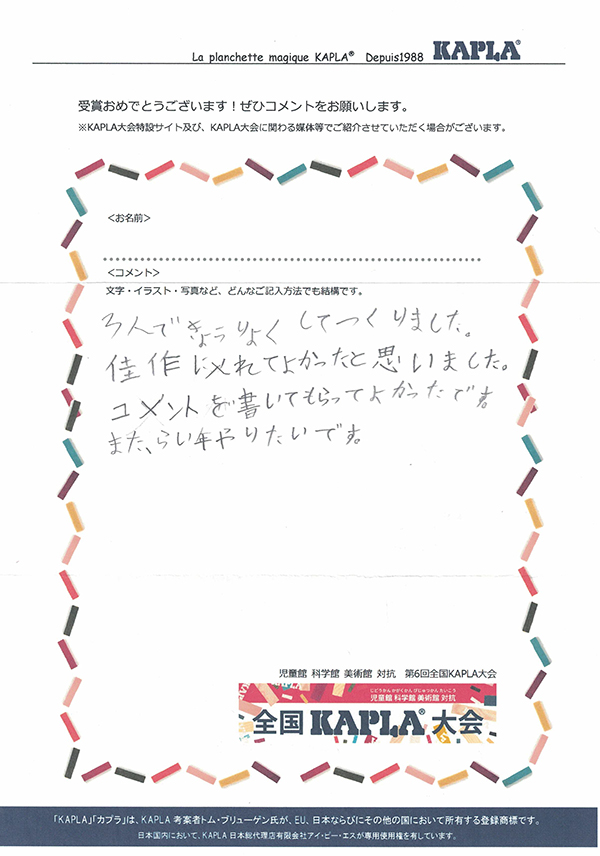 La planchette magique KAPLA® Depuis1988 KAPLA®
受賞おめでとうございます！ぜひコメントをお願いします。
※KAPLA大会特設サイト及び、KAPLA大会に関わる媒体等でご紹介させていただく場合がございます。
<お名前>
<コメント>
文字・イラスト・写真など、どんなご記入方法でも結構です。
3人できょうりょくしてつくりました。
佳作に入れてよかったと思いました。
コメントを書いてもらってよかったです。
また、らい年やりたいです。
児童館 科学館 美術館 対抗 第6回全国KAPLA大会
じどうかん かがくかん びじゅつかん たいこう
児童館 科学館 美術館 対抗
全国 KAPLA® 大会
「KAPLA」「カプラ」は、KAPLA 考案者トム・ブリューゲン氏が、EU、日本ならびにその他の国において所有する登録商標です。
日本国内において、KAPLA 日本総代理店有限会社アイ・ピー・エスが専用使用権を有しています。